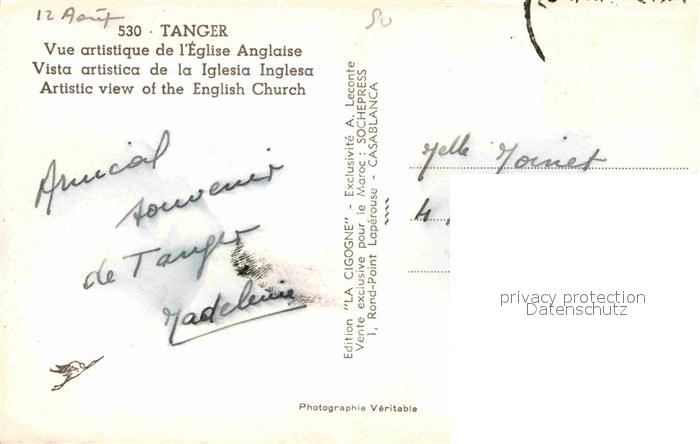 12 Août
530 · TANGER
Vue artistique de l'Église Anglaise
Vista artistica de la Iglesia Inglesa
Artistic view of the English Church
Amical
souvenir
de Tanger
Madeleine
Edition "LA CIGOGNE" - Exclusivité A. Leconte
Vente exclusive pour le Maroc : SOCHEPRESS
1, Rond-Point Lapérouse - CASABLANCA
Melle Moinet
4,
privacy protection
Datenschutz
Photographie Véritable